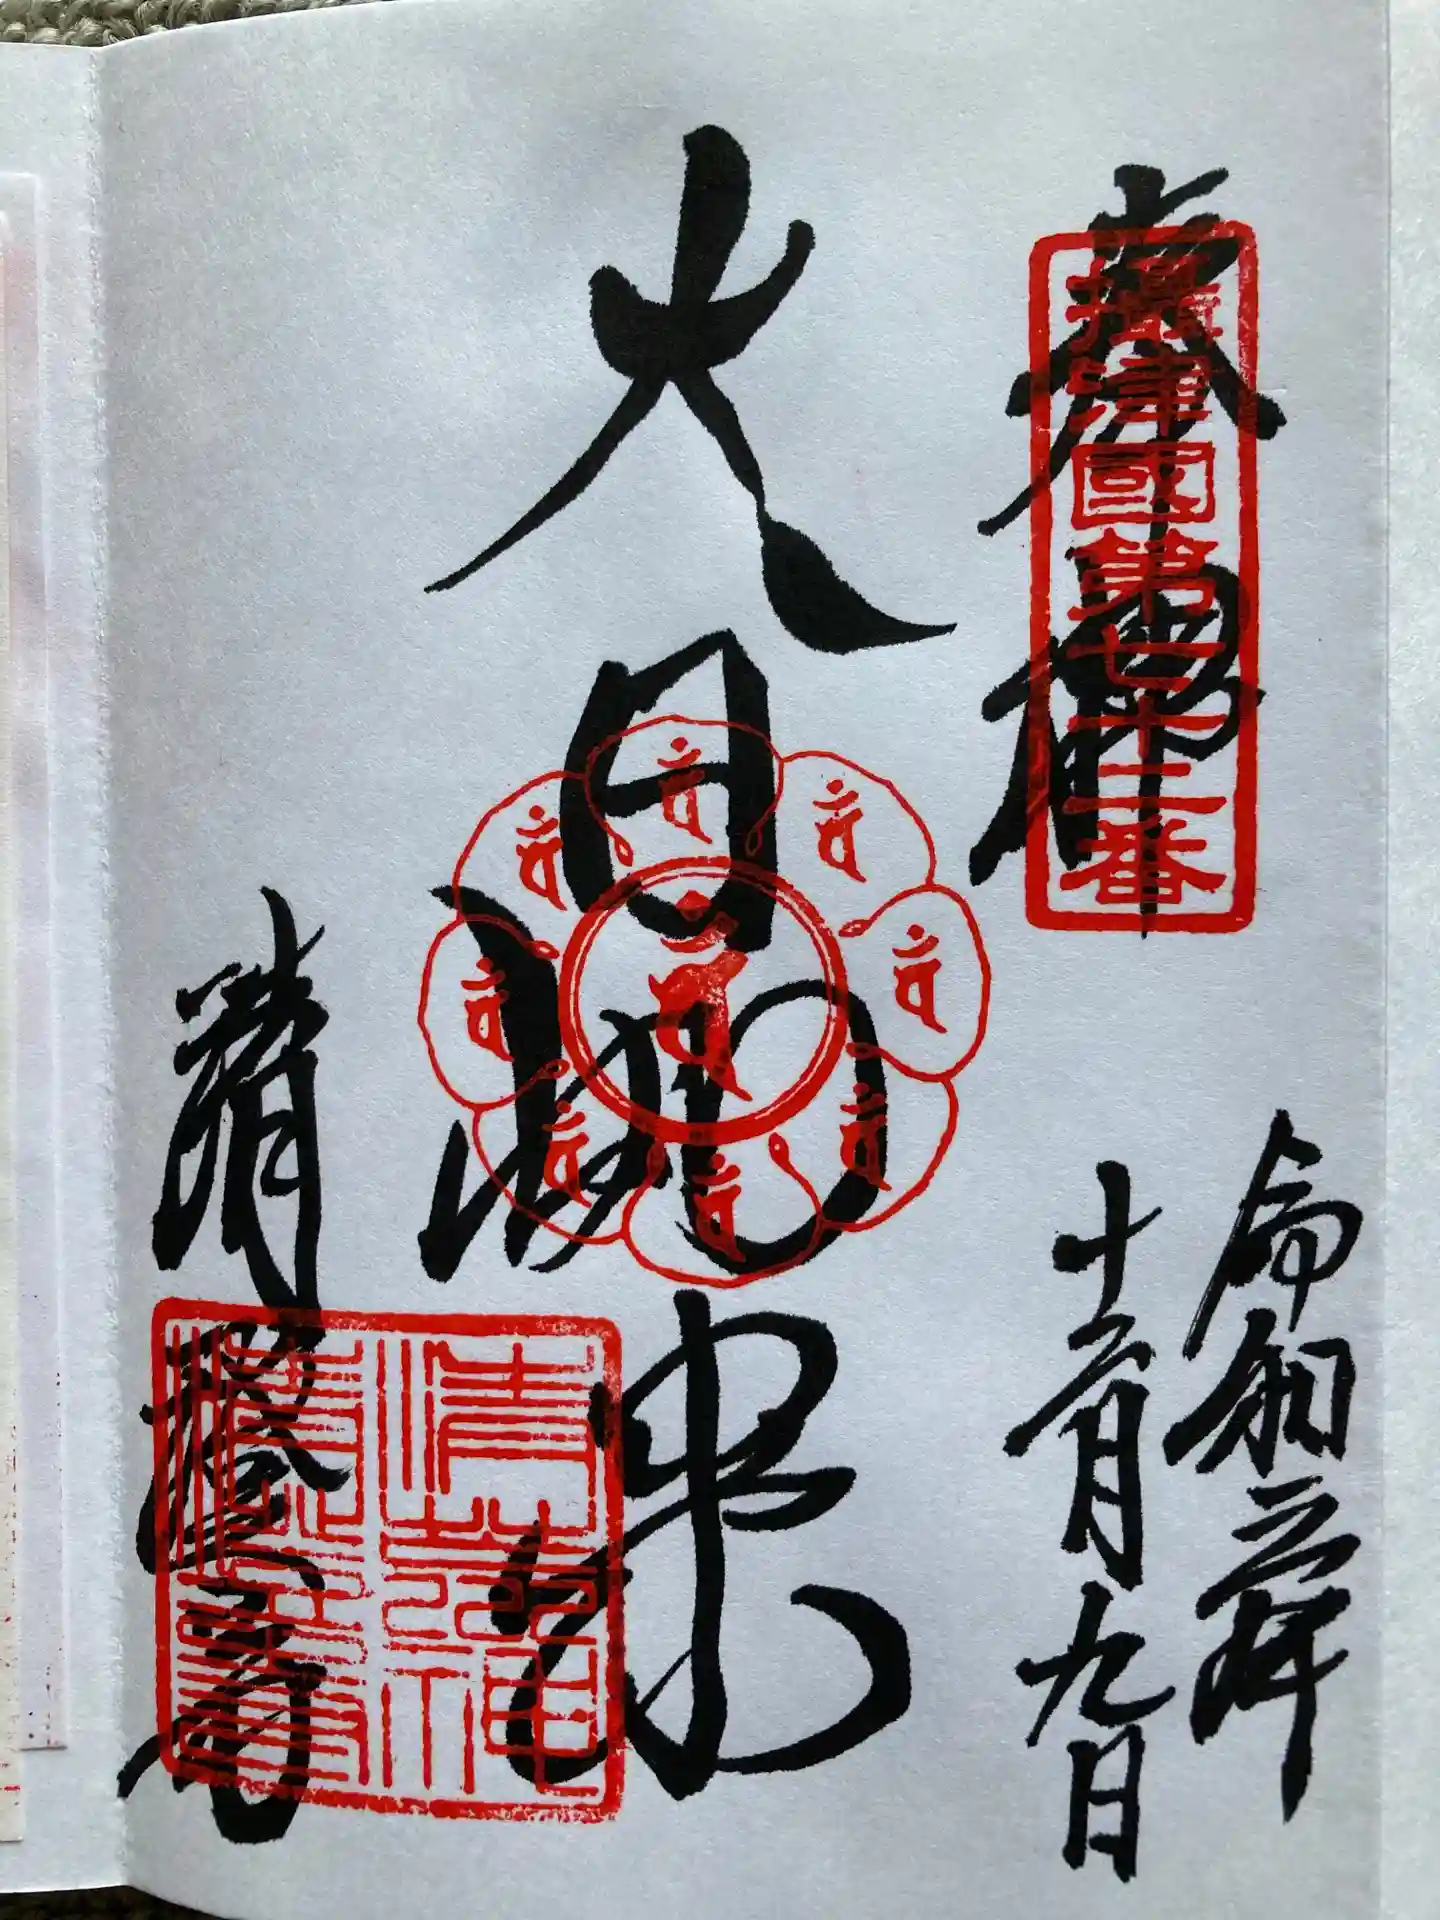 奉拝
摂津國第七十二番
令和三年
十二月九日
大日如来
清澄寺
清荒神